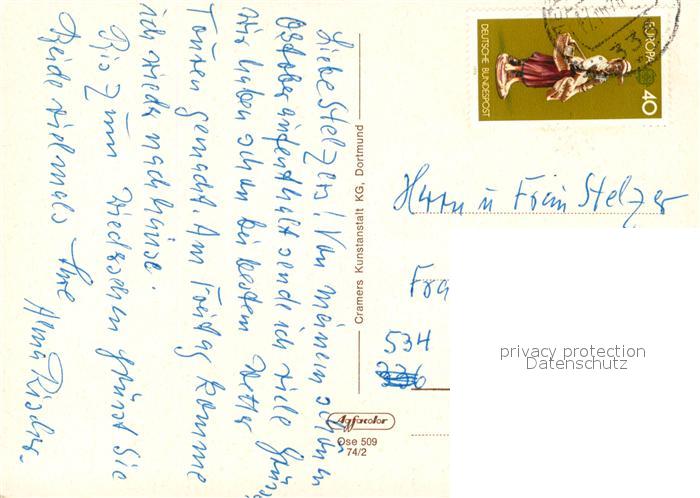 Liebe Stelzers! Von meinem schönen
Oktoberaufenthalt sende ich viele Grüsse
Wir haben schon bei bestem Wetter
Touren gemacht. Am Freitag komme
ich wieder nachhause.
Bis zum Wiedersehen grüsst Sie
Beide vielmals Ihre
Alma
Cramers Kunstanstalt KG, Dortmund
EUROPA
40
DEUTSCHE BUNDESPOST
33
Herrn u Frau Stelzer
Fra
534
privacy protection
Datenschutz
Agfacolor
Ose 509
74/2